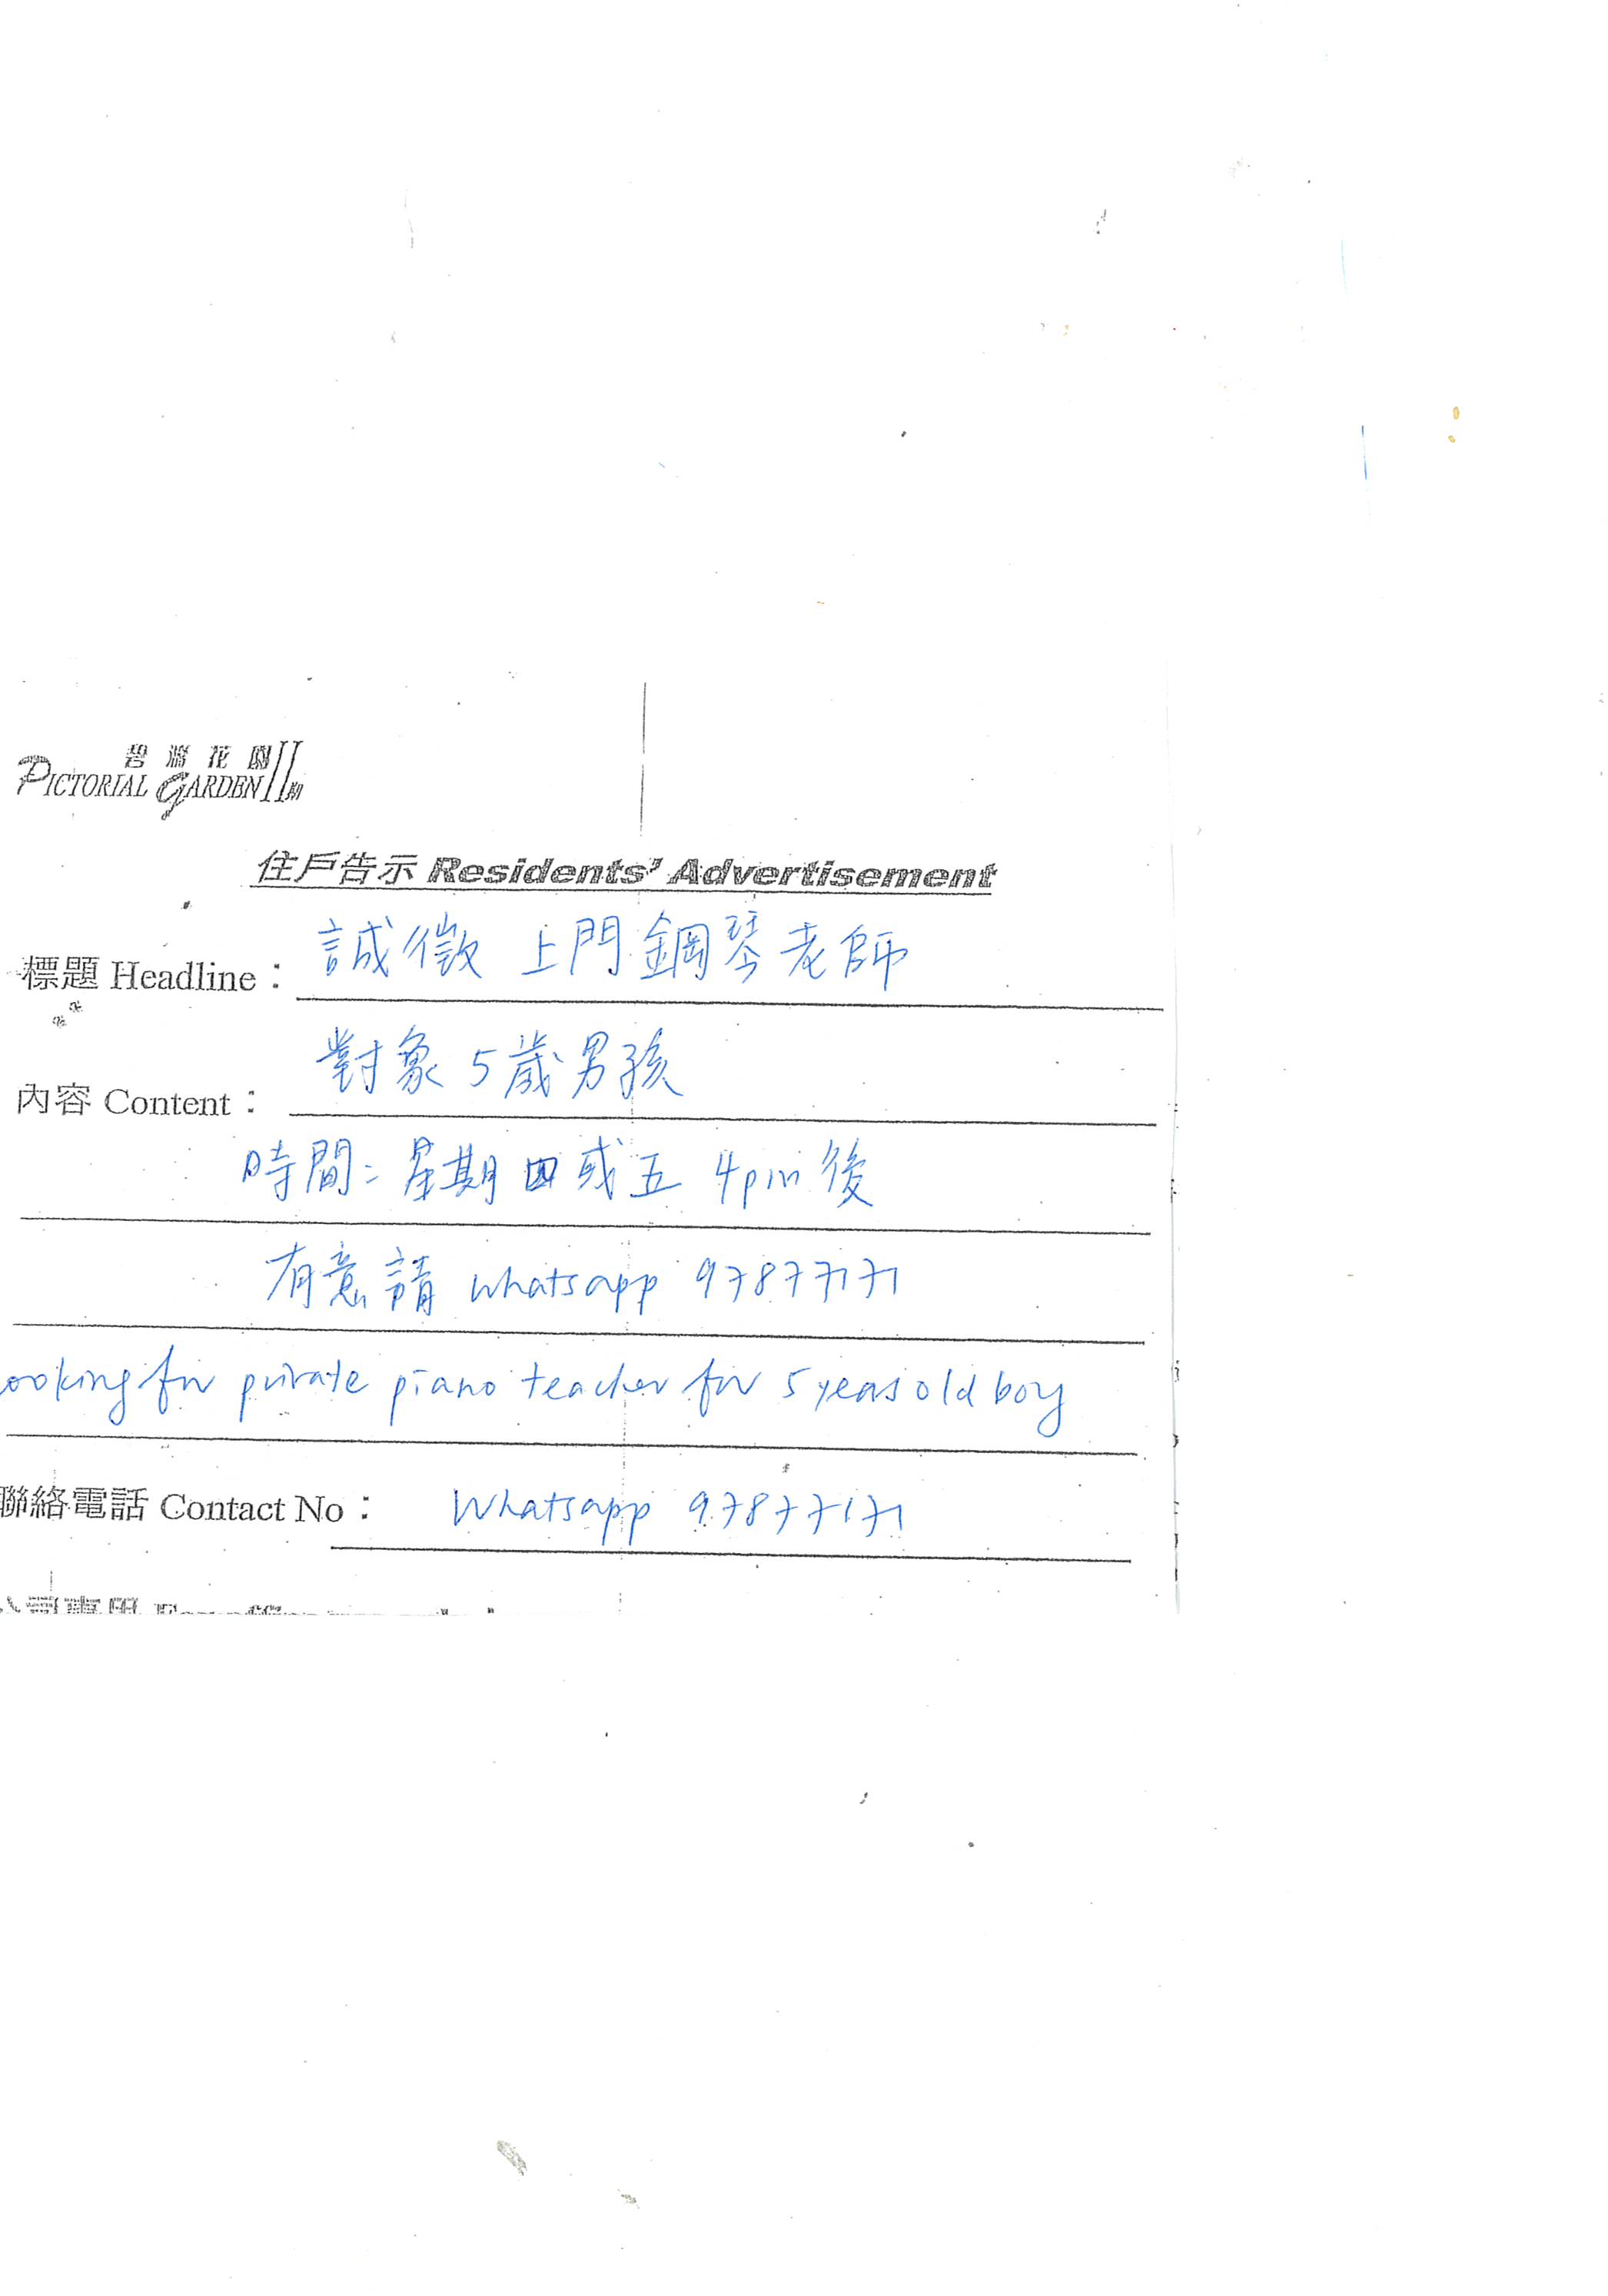 碧濤花園
PICTORIAL GARDEN II 期
住戶告示 Residents' Advertisement
標題 Headline： 誠徵 上門鋼琴老師
內容 Content： 對象 5歲男孩
時間: 星期四或五 4pm 後
有意請 whatsapp 97877171
ooking for private piano teacher for 5 years old boy
聯絡電話 Contact No： Whatsapp 97877171